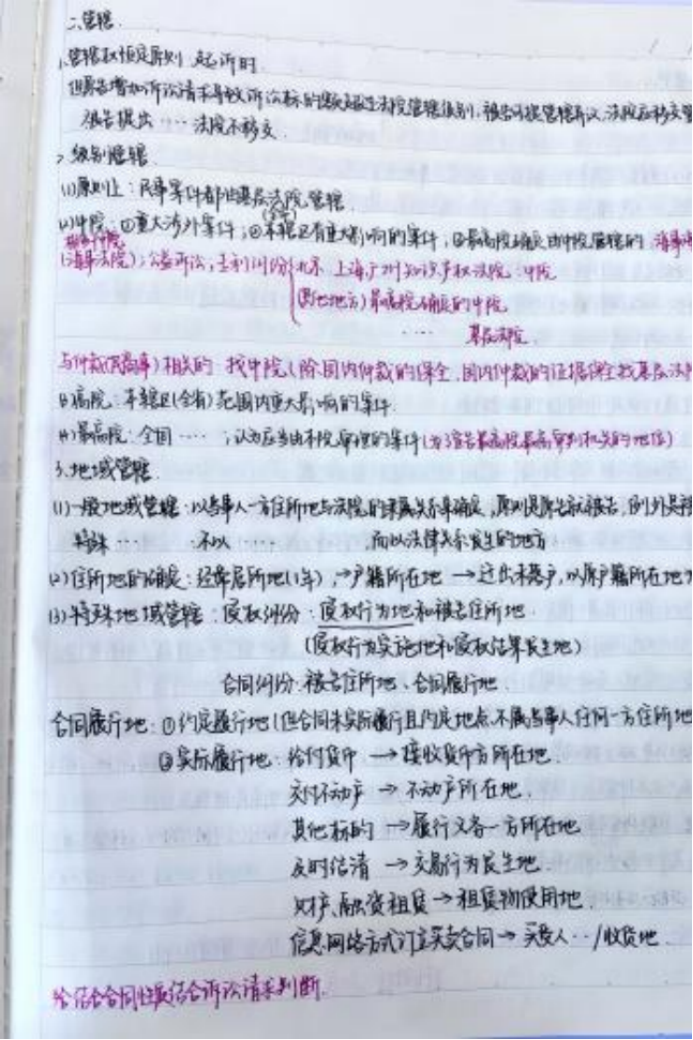 二、管辖.
1、管辖权恒定原则：起诉时.
但原告增加诉讼请求导致诉讼标的额超过法院管辖级别，被告可提管辖异议，法院应移交管
被告提出 …… 法院不移交.
2、级别管辖
(1)原则上：民事案件都由基层法院管辖.
(2)中院：①重大涉外案件；②本辖区有重大影响的案件；③最高院确定由中院管辖的
(海事法院)；公益诉讼，专利纠纷 北京、上海、广州知识产权法院、中院
(其他地方) 最高院确定的中院
…… 基层法院.
相关的 找中院(除国内仲裁的保全，国内仲裁的证据保全找基层法院
(3)高院：本辖区(全省)范围内重大影响的案件.
(4)最高院：全国 ……；认为应当由本院审理的案件
3、地域管辖
(1)一般地域管辖：以当事人一方住所地与法院的隶属关系来确定，原则是原告就被告，例外是
特殊 …… 不以 而以法律关系发生的地方
(2)住所地的确定：经常居所地(1年) → 户籍所在地 → 迁出未落户，以原户籍所在地为
(3)特殊地域管辖：侵权纠纷：侵权行为地和被告住所地.
(侵权行为实施地和侵权结果发生地)
合同纠纷：被告住所地、合同履行地.
合同履行地：①约定履行地(但合同未实际履行且约定地点不属当事人任何一方住所地
②实际履行地：给付货币 → 接收货币方所在地.
交付不动产 → 不动产所在地.
其他标的 → 履行义务一方所在地.
及时结清 → 交易行为发生地.
财产、融资租赁 → 租赁物使用地.
信息网络方式订立买卖合同 → 买受人…/收货地.
结合合同性质结合诉讼请求判断.